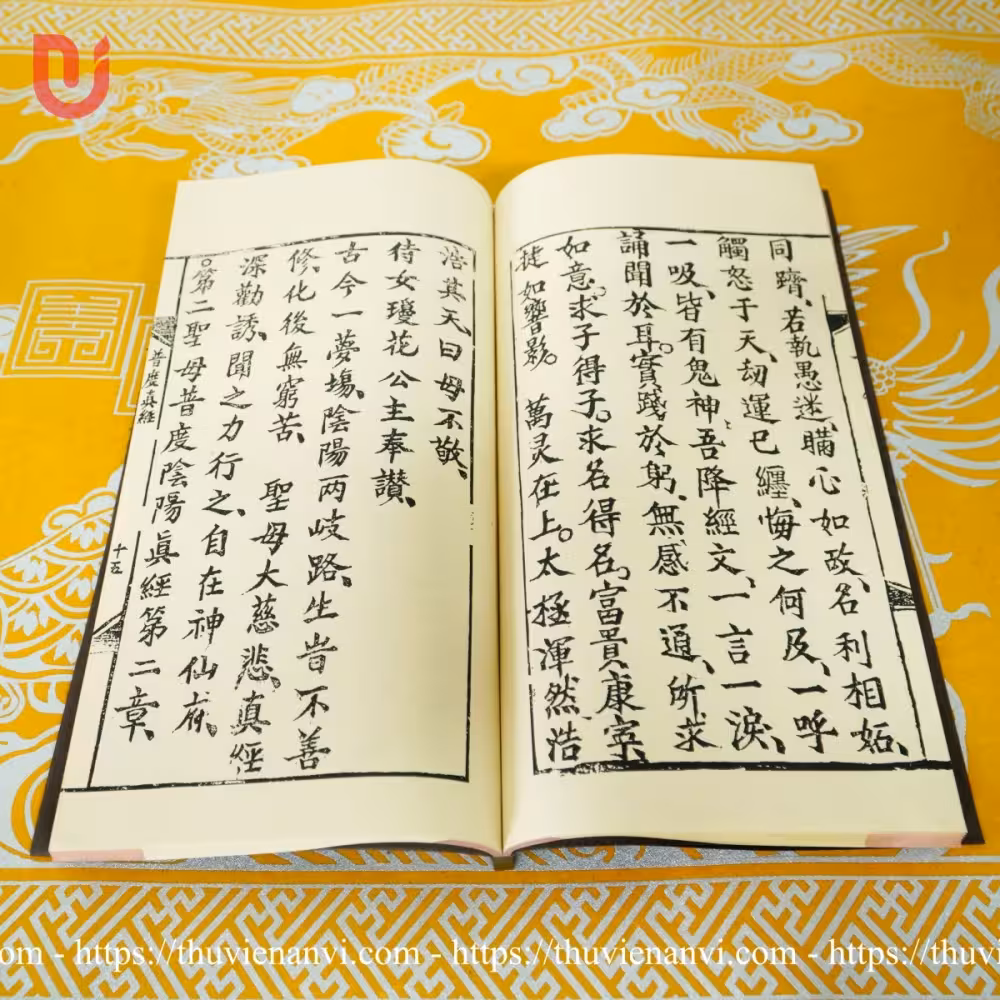 同躋、若執愚迷、瞞心如故、名利相妬、
觸怒于天、劫運已纏、悔之何及、一呼
一吸、皆有鬼神、吾降經文、一言一淚、
誦聞於耳。實踐於躬、無感不通、所求
如意。求子得子。求名得名。富貴康寧、
捷如響影。萬灵在上。太極渾然浩
浩其天曰毋不敬、
侍女瓊花公主奉讚、
古今一夢場、陰陽两岐路、生旹不善
修、化後無窮苦、聖母大慈悲、真經
深勸誘、聞之力行之、自在神仙府。
○第二聖母普度陰陽眞經第二章、
普度真經 十五
om - https://thuvienanvi.com - https://thuvienanvi.com - https://thuvi